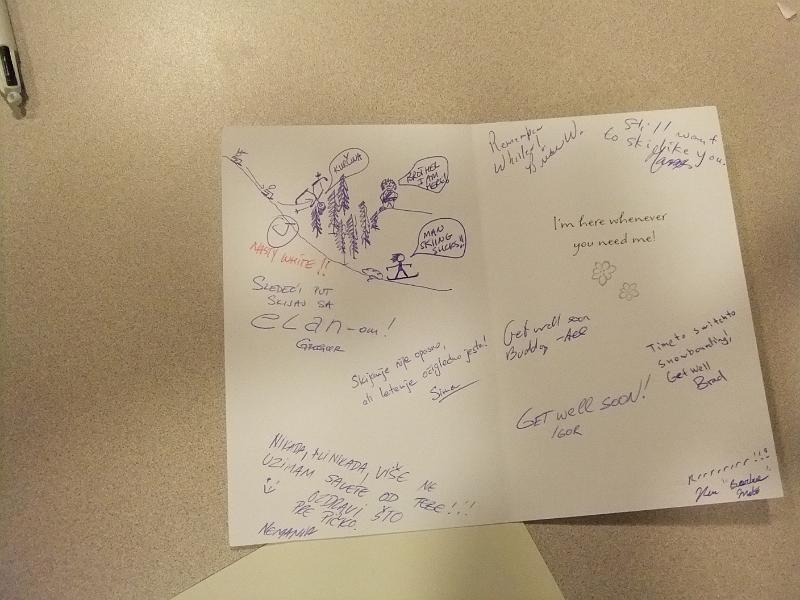 KUČINA
BROTHER
I AM
HERE!
MAN
SKIING
SUCKS!!
NASTY WHITE!!
SLEDEĆI PUT
SKIJAJ SA
eLan-om!
GREGOR
Skijanje nije opasno,
ali letenje očigledno jeste!
Sima
NIKADA, ALI NIKADA, VIŠE NE
UZIMAM SAVETE OD TEBE!!!
OZDRAVI ŠTO
PRE PIČKO.
NEMANJA
Remember
Whistler!
Brian W.
Still want
to ski like you.
I'm here whenever
you need me!
Get well soon
Buddy -Ace
Time to switch to
snowboarding!
Get well
Brad
GET well SOON!
IGOR
Rrrrrrrr!!!